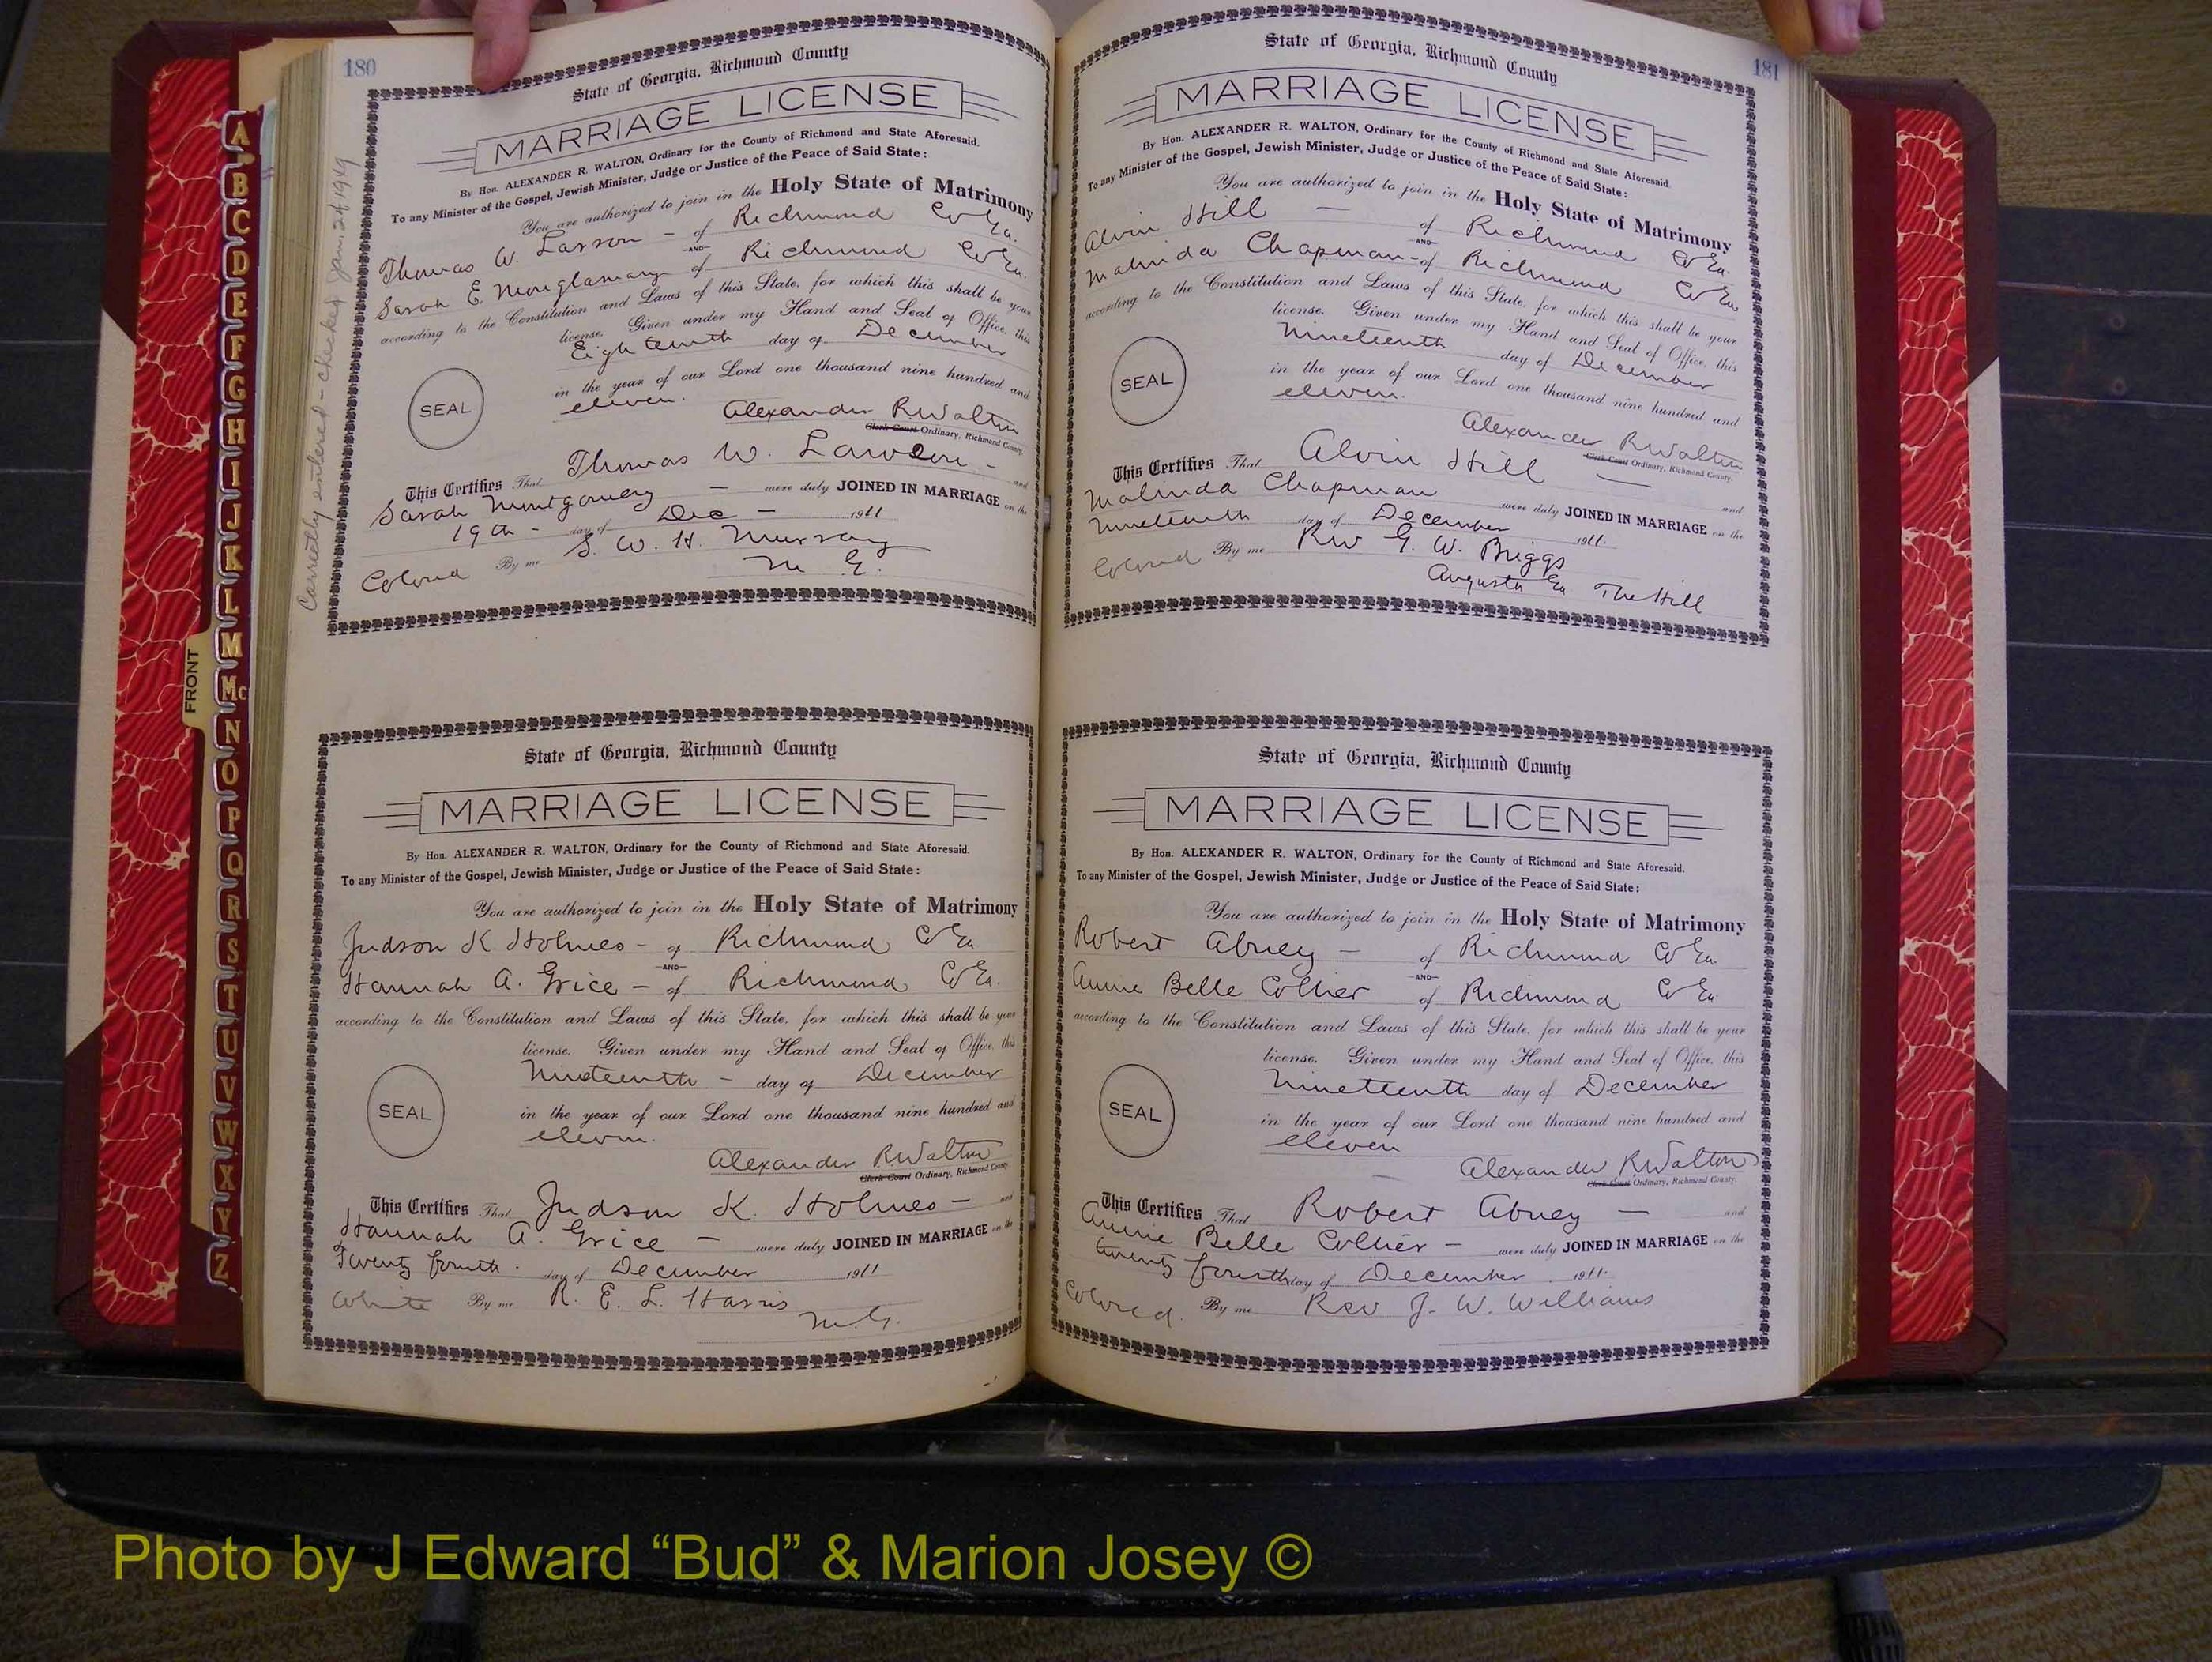 180
State of Georgia, Richmond County
MARRIAGE LICENSE
By Hon. ALEXANDER R. WALTON, Ordinary for the County of Richmond and State Aforesaid.
To any Minister of the Gospel, Jewish Minister, Judge or Justice of the Peace of Said State:
You are authorized to join in the Holy State of Matrimony
Thomas W. Larson - of Richmond Co Ga.
AND
Sarah E. of Richmond Co Ga.
according to the Constitution and Laws of this State, for which this shall be your
license. Given under my Hand and Seal of Office, this
Eighteenth day of December
in the year of our Lord one thousand nine hundred and
eleven.
SEAL
Alexander R Walton
Clerk Court Ordinary, Richmond County
This Certifies That Thomas W. - and
Sarah Montgomery - were duly JOINED IN MARRIAGE on the
19th - day of Dec - 1911
Colored By me S. W. H. Murray
M. G.
Correctly entered - checked Jan. 24 1949
State of Georgia, Richmond County
MARRIAGE LICENSE
By Hon. ALEXANDER R. WALTON, Ordinary for the County of Richmond and State Aforesaid.
To any Minister of the Gospel, Jewish Minister, Judge or Justice of the Peace of Said State:
You are authorized to join in the Holy State of Matrimony
Judson K. Holmes - of Richmond Co Ga
AND
Hannah A. Grice - of Richmond Co Ga.
according to the Constitution and Laws of this State, for which this shall be your
license. Given under my Hand and Seal of Office, this
Nineteenth - day of December
in the year of our Lord one thousand nine hundred and
eleven.
SEAL
Alexander R Walton
Clerk Court Ordinary, Richmond County
This Certifies That Judson K. Holmes - and
Hannah A. Grice - were duly JOINED IN MARRIAGE on the
Twenty fourth day of December 1911
White By me R. E. L. Harris
M. G.
181
State of Georgia, Richmond County
MARRIAGE LICENSE
By Hon. ALEXANDER R. WALTON, Ordinary for the County of Richmond and State Aforesaid.
To any Minister of the Gospel, Jewish Minister, Judge or Justice of the Peace of Said State:
You are authorized to join in the Holy State of Matrimony
Alvin Hill - of Richmond Co Ga.
AND
Malinda Chapman - of Richmond Co Ga
according to the Constitution and Laws of this State, for which this shall be your
license. Given under my Hand and Seal of Office, this
Nineteenth day of December
in the year of our Lord one thousand nine hundred and
eleven.
SEAL
Alexander R Walton
Clerk Court Ordinary, Richmond County
This Certifies That Alvin Hill - and
Malinda Chapman were duly JOINED IN MARRIAGE on the
Nineteenth day of December 1911
Colored By me Rev G. W. Briggs
Augusta Ga The Hill
State of Georgia, Richmond County
MARRIAGE LICENSE
By Hon. ALEXANDER R. WALTON, Ordinary for the County of Richmond and State Aforesaid.
To any Minister of the Gospel, Jewish Minister, Judge or Justice of the Peace of Said State:
You are authorized to join in the Holy State of Matrimony
Robert Abney - of Richmond Co Ga
AND
Annie Belle Collier of Richmond Co Ga
according to the Constitution and Laws of this State, for which this shall be your
license. Given under my Hand and Seal of Office, this
Nineteenth day of December
in the year of our Lord one thousand nine hundred and
eleven
SEAL
Alexander R Walton
Clerk Court Ordinary, Richmond County
This Certifies That Robert Abney - and
Annie Belle Collier - were duly JOINED IN MARRIAGE on the
twenty fourth day of December 1911
Colored. By me Rev J. W. Williams
FRONT
A
B
C
D
E
F
G
H
I
J
K
L
M
Mc
N
O
P
Q
R
S
T
U
V
W
X
Y
Z
Photo by J Edward “Bud” & Marion Josey ©